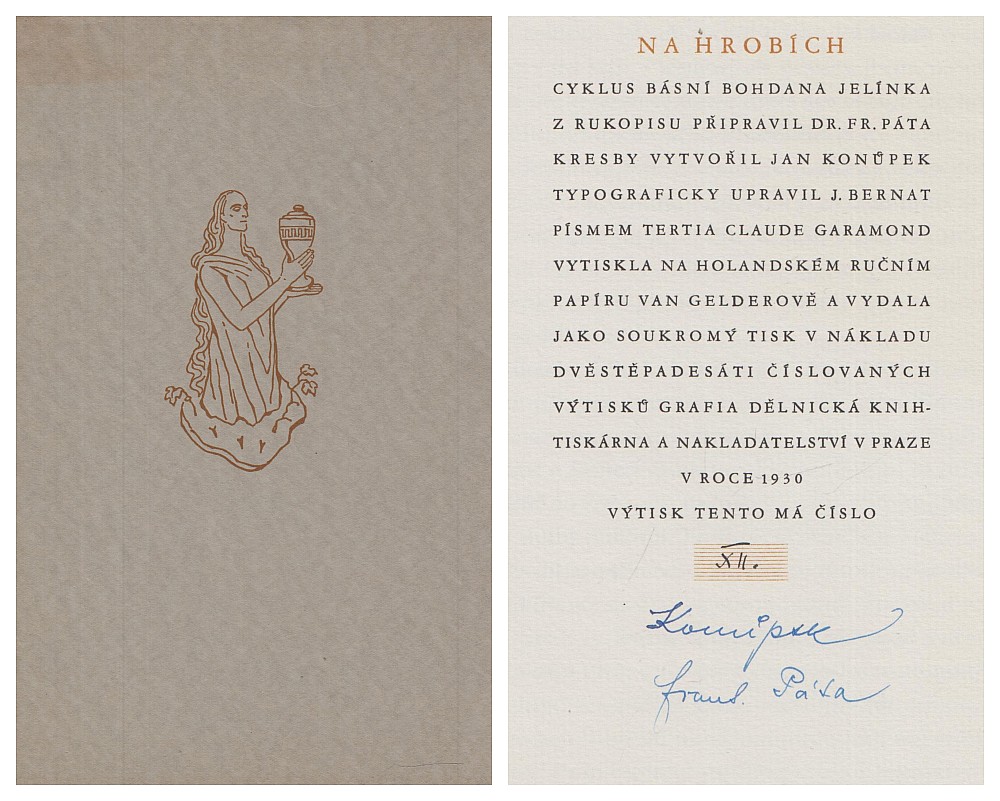 NA HROBÍCH
CYKLUS BÁSNÍ BOHDANA JELÍNKA
Z RUKOPISU PŘIPRAVIL DR. FR. PÁTA
KRESBY VYTVOŘIL JAN KONŮPEK
TYPOGRAFICKY UPRAVIL J. BERNAT
PÍSMEM TERTIA CLAUDE GARAMOND
VYTISKLA NA HOLANDSKÉM RUČNÍM
PAPÍRU VAN GELDEROVĚ A VYDALA
JAKO SOUKROMÝ TISK V NÁKLADU
DVĚSTĚPADESÁTI ČÍSLOVANÝCH
VÝTISKŮ GRAFIA DĚLNICKÁ KNIH-
TISKÁRNA A NAKLADATELSTVÍ V PRAZE
V ROCE 1930
VÝTISK TENTO MÁ ČÍSLO
XII.
Konůpek
Frant. Páta